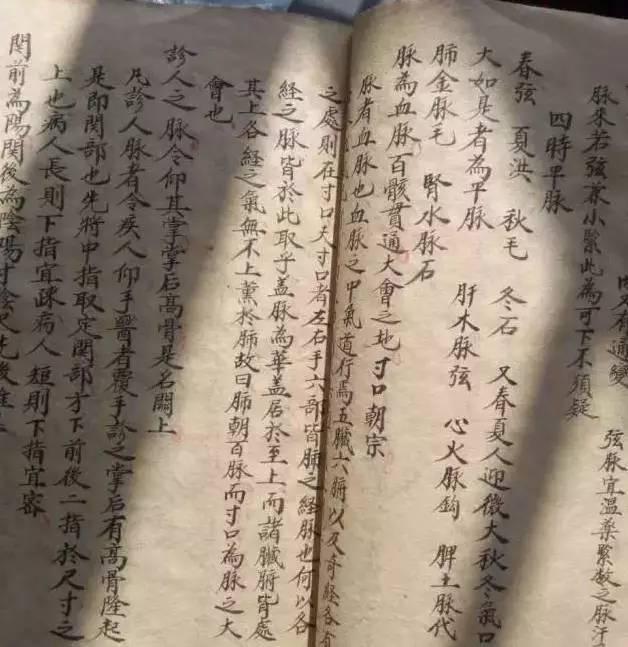 又有通變
弦脉宜温藥緊数之脉汗
脉来若弦兼小緊此為可下不須疑
四時平脉
春弦 夏洪 秋毛 冬石 又春夏人迎微大秋冬氣口
大如是者為平脉 肝木脉弦 心火脉鈎 脾土脉代
肺金脉毛 腎水脉石
脉為血脉百骸貫通大會之地 寸口朝宗
脉者血脉也血脉之中氣道行焉五臟六腑以及奇經各有
之處則在寸口夫寸口者左右手六部皆肺之經脉也何以各
經之脉皆於此取乎盖脉為華盖居於至上而諸臟腑皆處
其上各經之氣無不上薰於肺故曰肺朝百脉而寸口為脉之大
會也
診人之脉令仰其掌掌后髙骨是名關上
凡診人脉者令疾人仰手醫者覆手診之掌后有髙骨隆起
是即関部也先將中指取定関部才下前後二指於尺寸之
上也病人長則下指宜疎病人短則下指宜審
関前為陽関後為陰陽寸陰尺先後